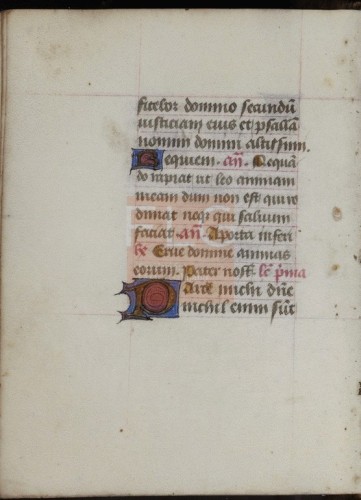 fitebor domino secundū
iusticiam eius et psallā
nomini domini altissimi.
Requiem. an̄. Nequā
do rapiat ut leo animam
meam dum non est qui re
dimat neq; qui saluum
faciat. an̄. Aporta inferi
Erue domine animas
eorum. Pater nost̄. le p̄ma
Parce michi dn̄e
nichil enim sūt